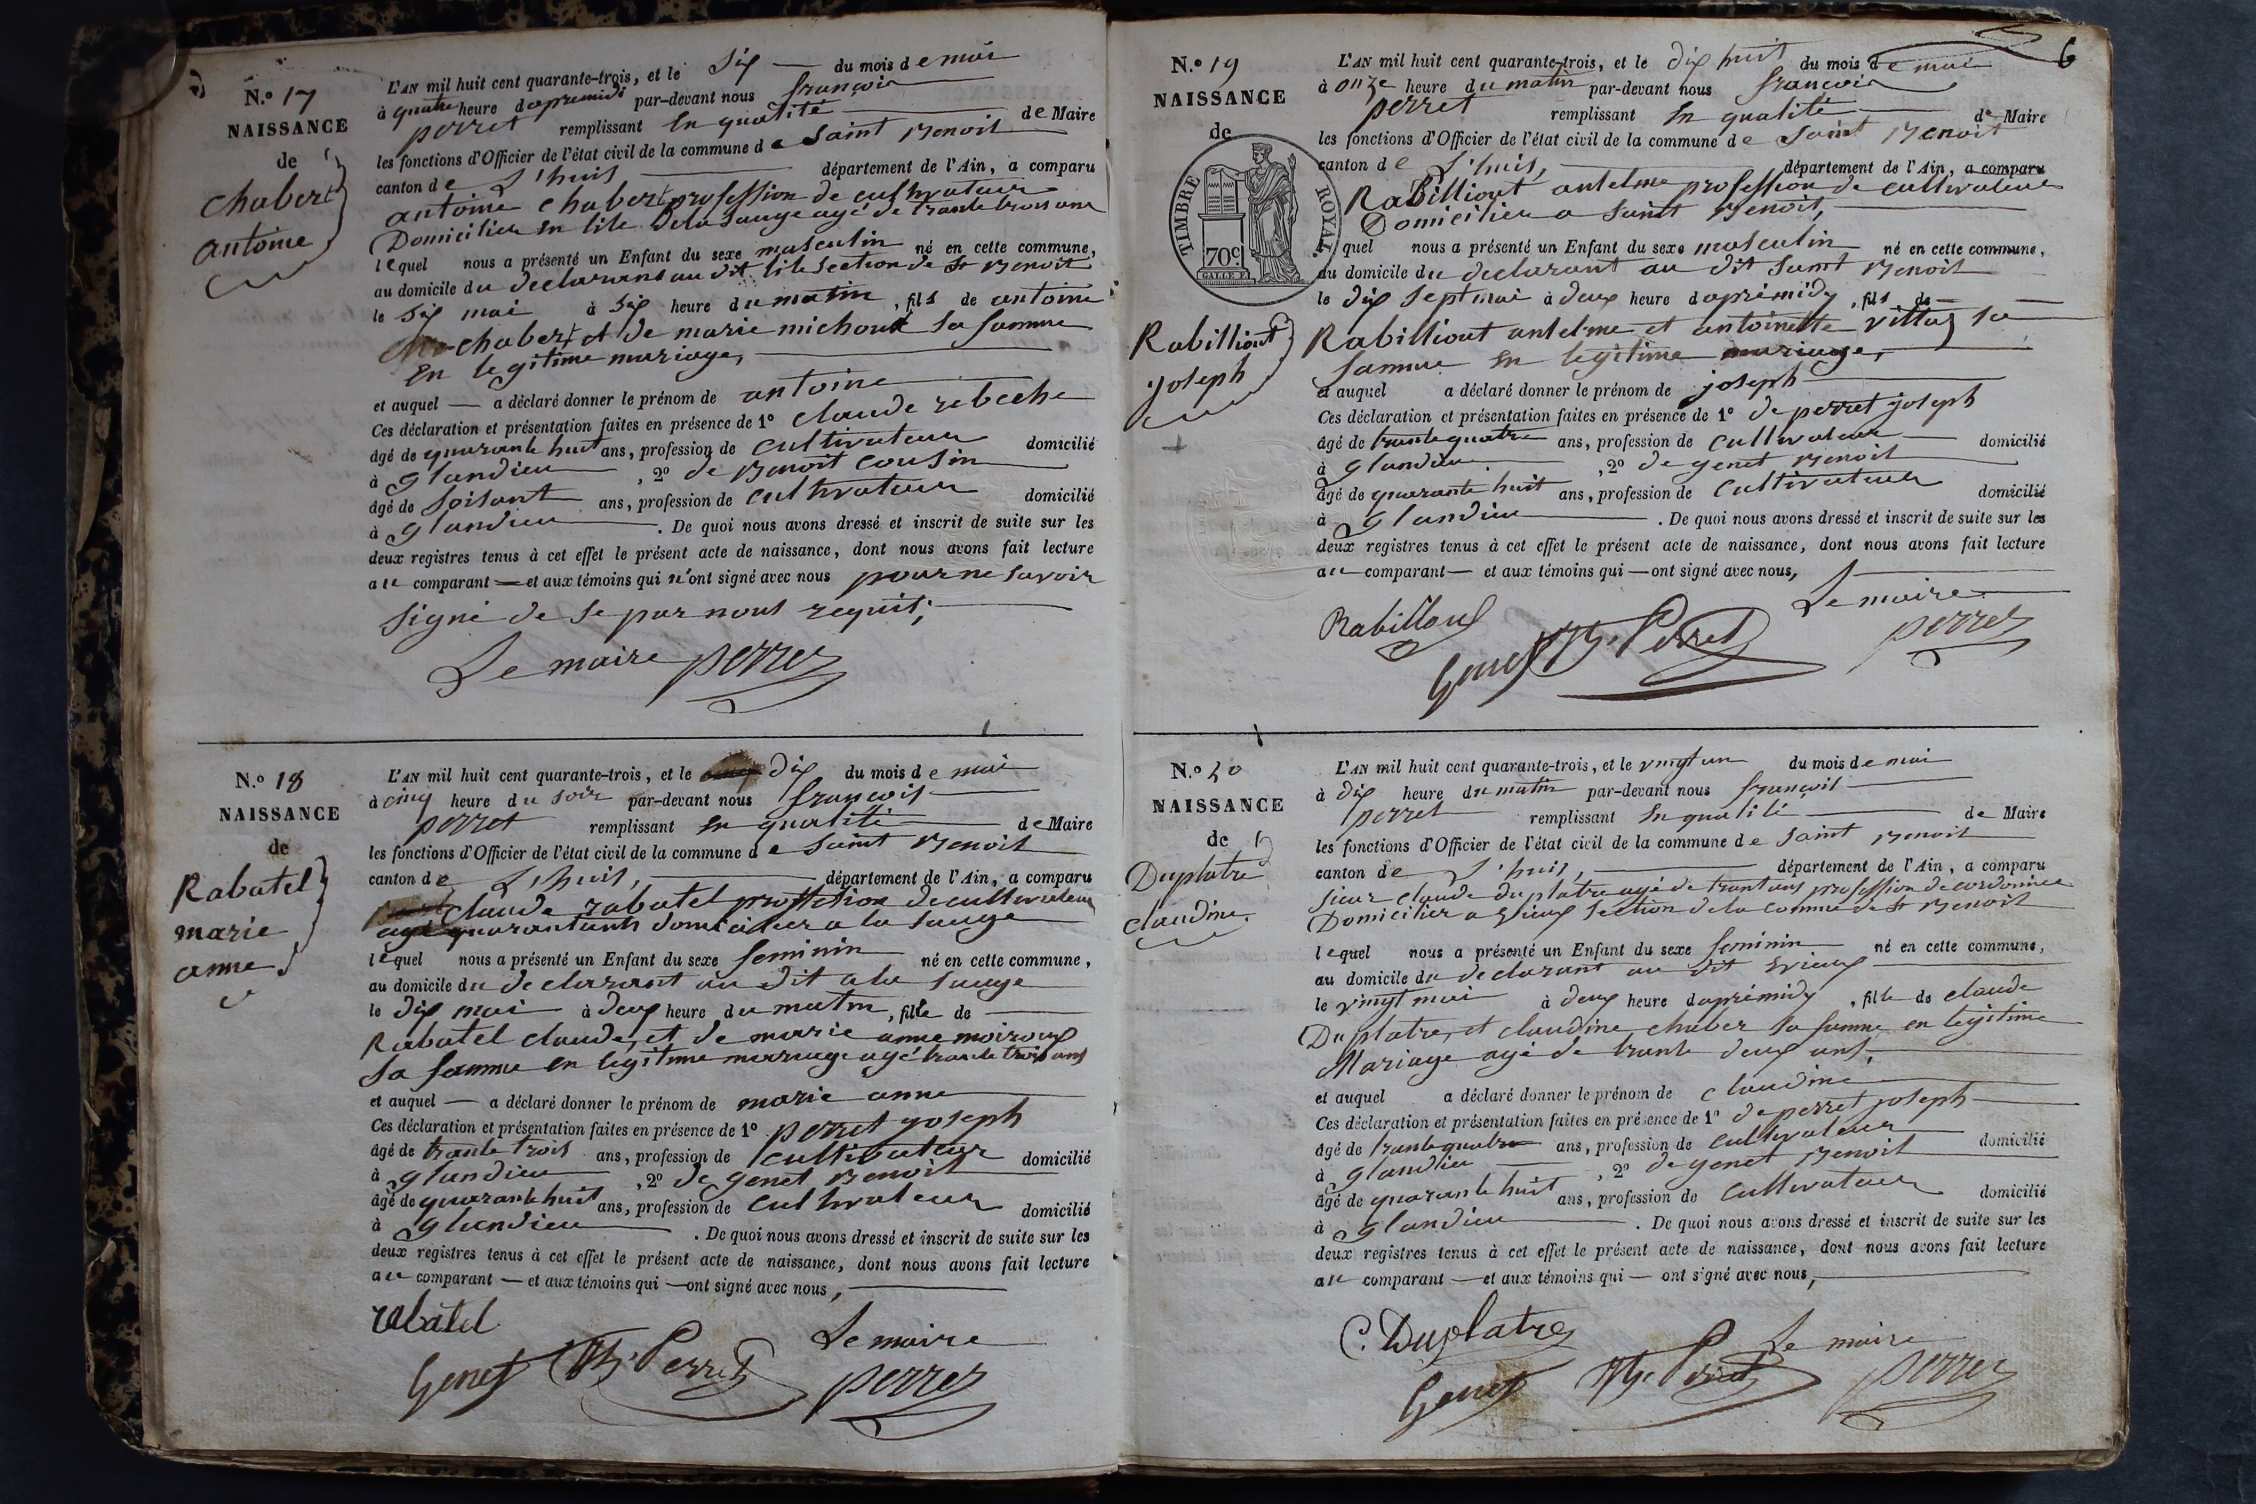 N.o 17
NAISSANCE
de
Chabert
antoine
L'AN mil huit cent quarante-trois, et le Six du mois de mai
à quatre heure d apremidi par-devant nous françois
perret remplissant En qualité de Maire
les fonctions d'Officier de l'état civil de la commune de Saint Benoit
canton de L'huis, département de l'Ain, a comparu
antoine Chabert profession de cultivateur
Domicilier en lile Dela Sauge agé de trante trois ans
lequel nous a présenté un Enfant du sexe masculin né en cette commune,
au domicile du declarant au dit lile section de St Benoit
le Six mai à Six heure du matin, fils de antoine
chabert et de marie michout Sa famme
En legitime mariage,
et auquel a déclaré donner le prénom de antoine
Ces déclaration et présentation faites en présence de 1o Claude rebeche
âgé de quarante huit ans, profession de Cultivateur domicilié
à glandieu, 2o de Benoit Cousin
âgé de Soisant ans, profession de Cultivateur domicilié
à glandieu. De quoi nous avons dressé et inscrit de suite sur les
deux registres tenus à cet effet le présent acte de naissance, dont nous avons fait lecture
au comparant et aux témoins qui n'ont signé avec nous pour ne savoir
Signé de Se par nous requis,
Le maire perret
N.o 18
NAISSANCE
de
Rabatel
marie
anne
L'AN mil huit cent quarante-trois, et le Dix du mois de mai
à cinq heure du soir par-devant nous françois
perret remplissant En qualité de Maire
les fonctions d'Officier de l'état civil de la commune de Saint Benoit
canton de L'huis, département de l'Ain, a comparu
Claude rabatel proffetion de cultivateur
agé quarantants domicilier a la sauge
lequel nous a présenté un Enfant du sexe feminin né en cette commune,
au domicile du declarant au dit a la Sauge
le dix mai à deux heure du matin, fille de
Rabatel claude, et de marie anne moiroux
Sa famme en legitime mariage agé trante trois ans
et auquel a déclaré donner le prénom de marie anne
Ces déclaration et présentation faites en présence de 1o perret joseph
âgé de trante trois ans, profession de cultivateur domicilié
à glandieu, 2o de genet Benoit
âgé de quarante huit ans, profession de Cultivateur domicilié
à glandieu. De quoi nous avons dressé et inscrit de suite sur les
deux registres tenus à cet effet le présent acte de naissance, dont nous avons fait lecture
au comparant et aux témoins qui ont signé avec nous,
rabatel
Le maire
Genet Perret perret
6
N.o 19
NAISSANCE
de
TIMBRE ROYAL
70c
Rabilliout
joseph
L'AN mil huit cent quarante-trois, et le dix huit du mois de mai
à onze heure du matin par-devant nous françois
perret remplissant En qualité de Maire
les fonctions d'Officier de l'état civil de la commune de Saint Benoit
canton de L'huis, département de l'Ain, a comparu
Rabilliout antelme profession de cultivateur
Domicilier a Saint Benoit,
lequel nous a présenté un Enfant du sexe masculin né en cette commune,
au domicile du declarant au dit Saint Benoit
le dix Sept mai à deux heure d apremidy, fils de
Rabilliout antelme et antoinette vittoz sa
famme En legitime mariage,
et auquel a déclaré donner le prénom de joseph
Ces déclaration et présentation faites en présence de 1o de perret joseph
âgé de trante quatre ans, profession de Cultivateur domicilié
à glandieu, 2o de genet Benoit
âgé de quarante huit ans, profession de Cultivateur domicilié
à glandieu. De quoi nous avons dressé et inscrit de suite sur les
deux registres tenus à cet effet le présent acte de naissance, dont nous avons fait lecture
au comparant et aux témoins qui ont signé avec nous,
Le maire
Rabilloud
Genet Perret perret
N.o 20
NAISSANCE
de
Duplatre
claudine
L'AN mil huit cent quarante-trois, et le vingt un du mois de mai
à dix heure du matin par-devant nous françois
perret remplissant En qualité de Maire
les fonctions d'Officier de l'état civil de la commune de Saint Benoit
canton de L'huis, département de l'Ain, a comparu
Sieur Claude duplatre agé de trantans profession de cordonnier
Domicilier a Evieux Section de la Commune de St Benoit
lequel nous a présenté un Enfant du sexe feminin né en cette commune,
au domicile du declarant au dit Evieux
le vingt mai à deux heure d apremidy, fille de claude
Duplatre, et claudine chaber Sa famme en legitime
Mariage agé de trante deux ans,
et auquel a déclaré donner le prénom de Claudine
Ces déclaration et présentation faites en présence de 1o de perret joseph
âgé de trante quatre ans, profession de Cultivateur domicilié
à glandieu, 2o de genet Benoit
âgé de quarante huit ans, profession de Cultivateur domicilié
à glandieu. De quoi nous avons dressé et inscrit de suite sur les
deux registres tenus à cet effet le présent acte de naissance, dont nous avons fait lecture
au comparant et aux témoins qui ont signé avec nous,
C. Duplatre
Le maire
Genet Perret perret